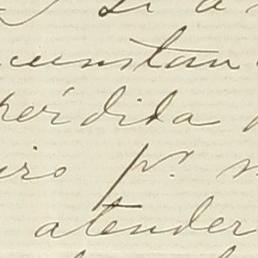 si a
cunstan
pérdida
iro pr.
atender